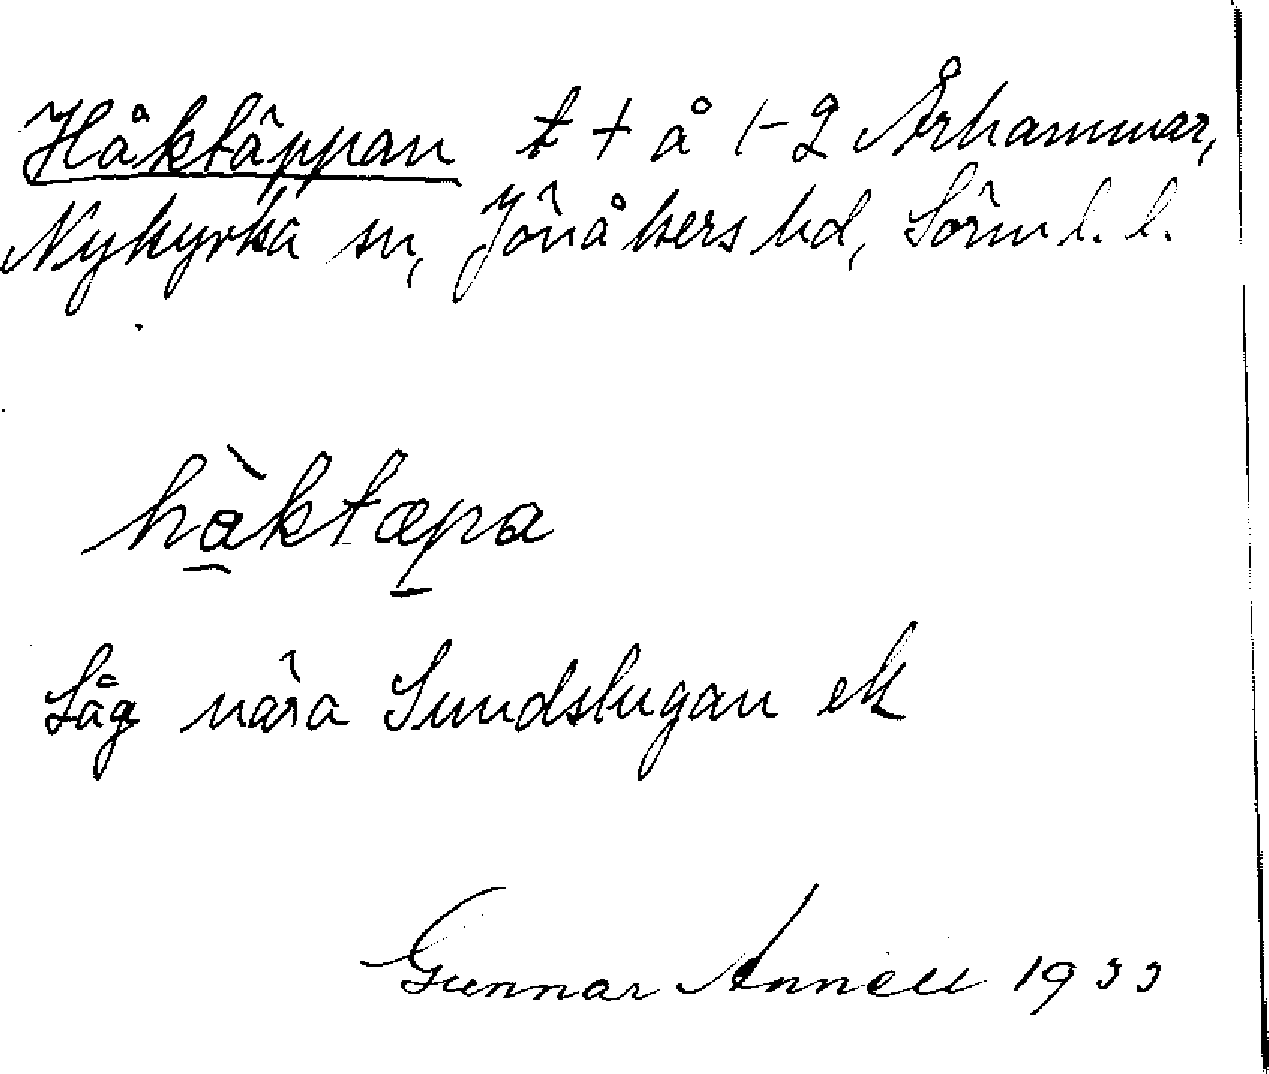 Håktäppan t + å 1-2 Århammar,
Nykyrka sn, Jönåkers hd, Sörml. l.
hàktæpa
Låg nära Sundslugan ek
Gunnar Annell 1933